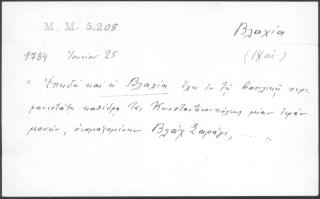 M. M. 5,208
Βλαχία
1784 Ἰουνίου 25
(18αἰ.)
" Ἐπειδὴ καὶ ἡ Βλαχία ἔχει ἐν τῇ βασιλικῇ περι-
φανεστάτῃ καθέδρᾳ τῆς Κωνσταντινουπόλεως μίαν ἱερὰν
μονήν, ὀνομαζομένην Βλὰχ Σαράγι, .... "